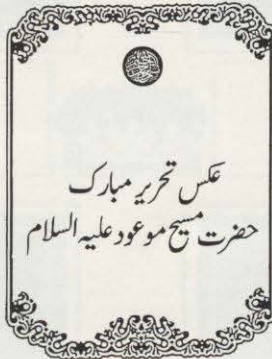 عکس تحریر مبارک
حضرت مسیح موعود علیہ السلام